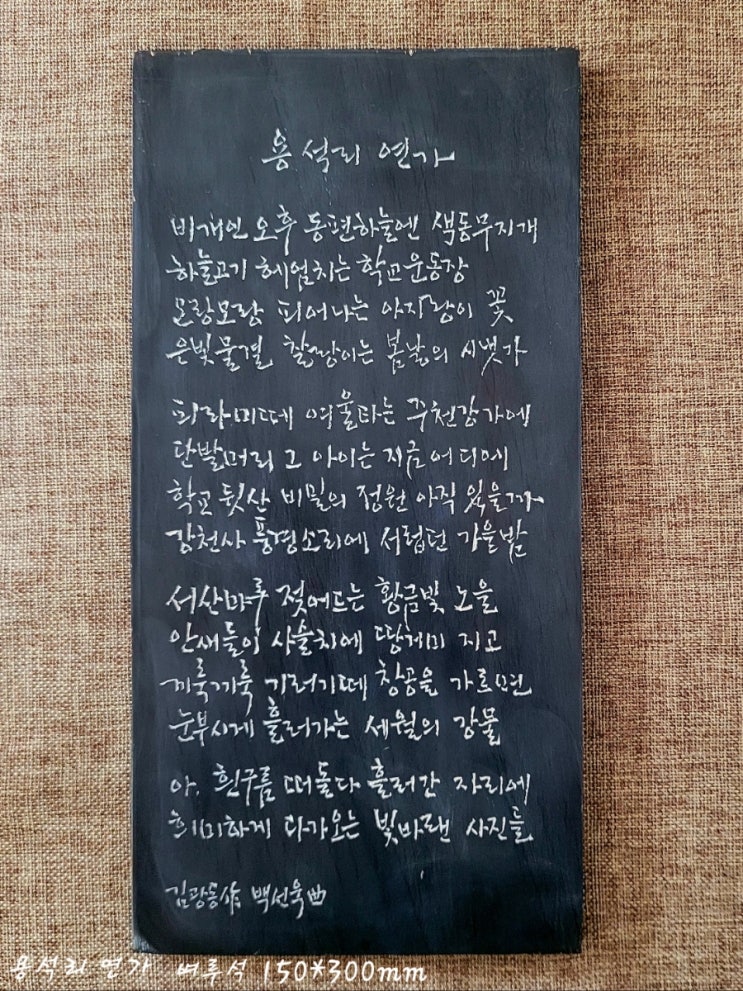 용석리 연가
비개인 오후 동편하늘엔 색동무지개
하늘고기 헤엄치는 학교운동장
모랑모랑 피어나는 아지랑이 꽃
은빛물결 찰랑이는 봄날의 시냇가
피라미떼 여울타는 주천강가에
단발머리 그 아이는 지금 어디에
학교 뒷산 비밀의 정원 아직 있을까
강천사 풍경소리에 서럽던 가을밤
서산마루 젖어드는 황금빛 노을
안새들이 사슬치에 땅거미 지고
끼룩끼룩 기러기떼 창공을 가르면
눈부시게 흘러가는 세월의 강물
아, 흰구름 떠돌다 흘러간 자리에
희미하게 다가오는 빛바랜 사진들
김광동作 백선욱曲
용석리 연가 벼루석 150*300mm